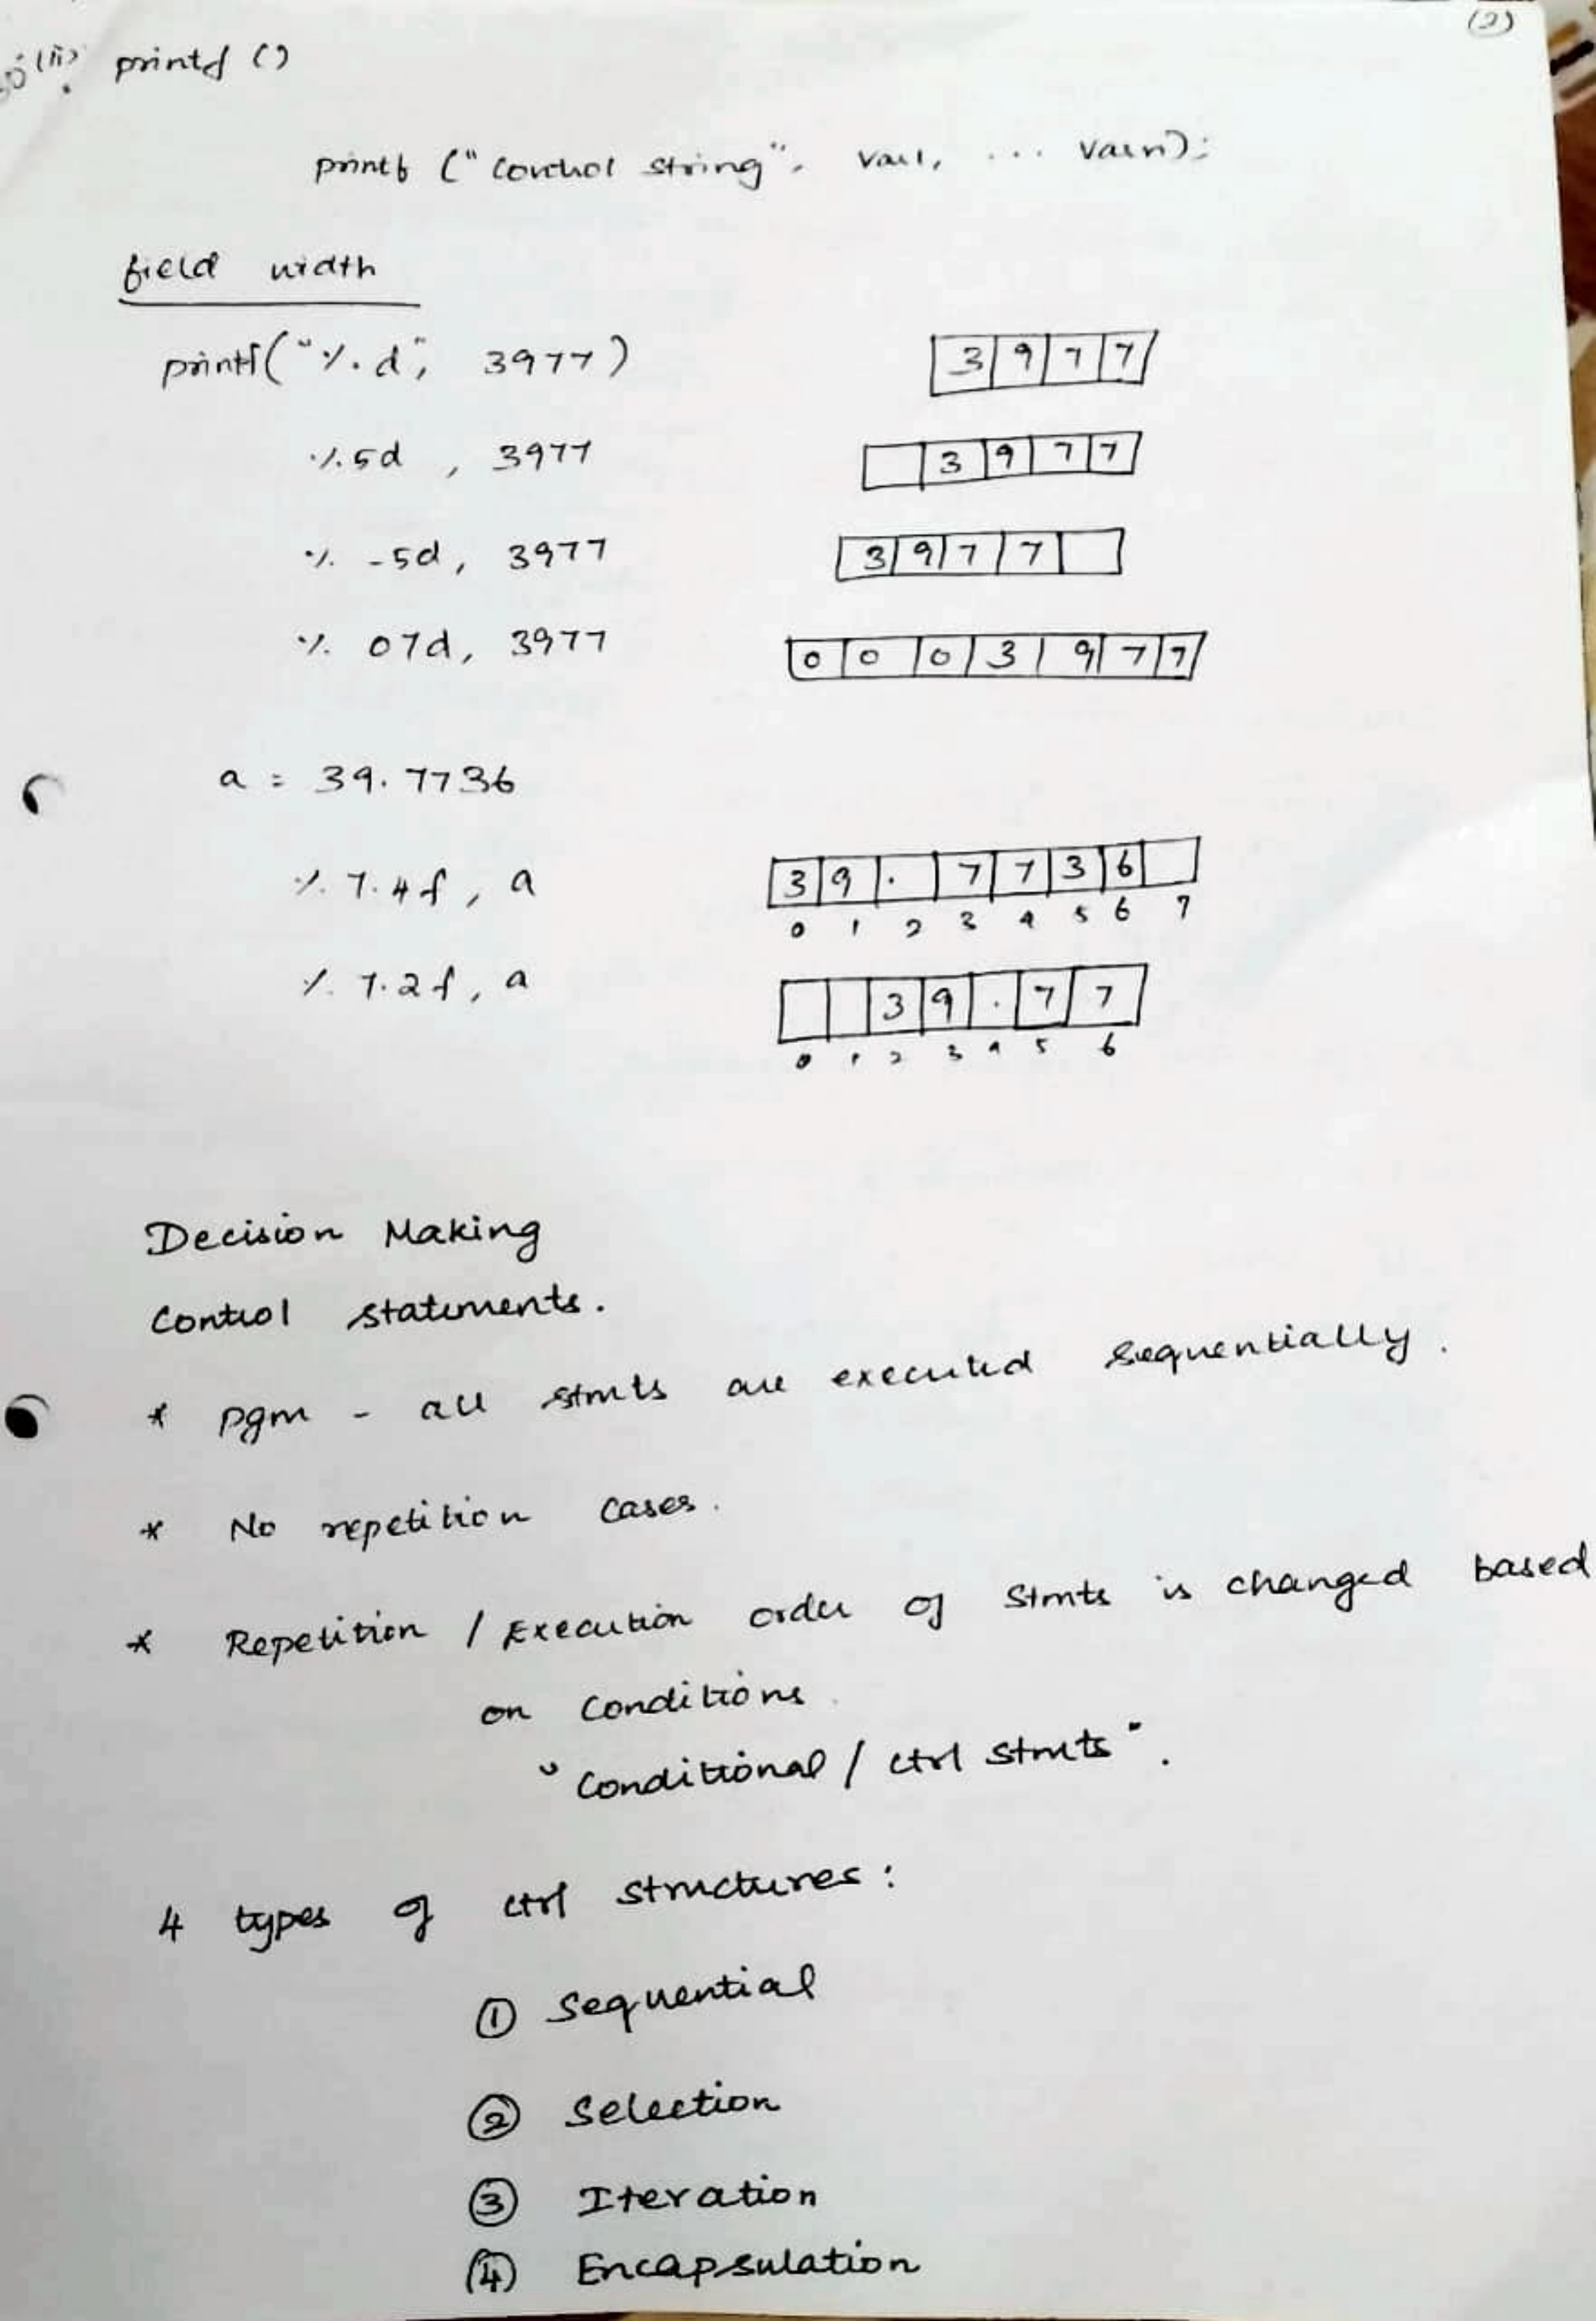 (2)
(ii) printf ()
printf ("Control string", var1, ... varn);
field width
printf("%d", 3977) 3 9 7 7
%5d , 3977 3 9 7 7
% -5d, 3977 3 9 7 7
% 07d, 3977 0 0 0 3 9 7 7
a = 39.7736
% 7.4f, a 3 9 . 7 7 3 6
0 1 2 3 4 5 6 7
% 7.2f, a 3 9 . 7 7
0 1 2 3 4 5 6
Decision Making
Control statements.
* pgm - all stmts are executed sequentially.
* No repetition cases.
* Repetition / Execution order of stmts is changed based
on conditions.
"Conditional / ctrl stmts".
4 types of ctrl structures:
① Sequential
② Selection
③ Iteration
④ Encapsulation